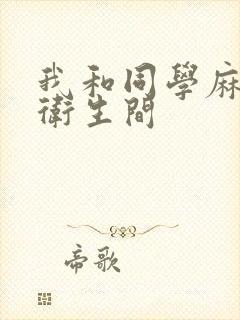 我和同學麻
衛生間
帝歌